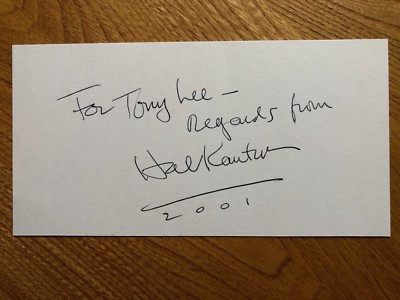 For Tony Lee –
Regards from
Hal Kanter
2001